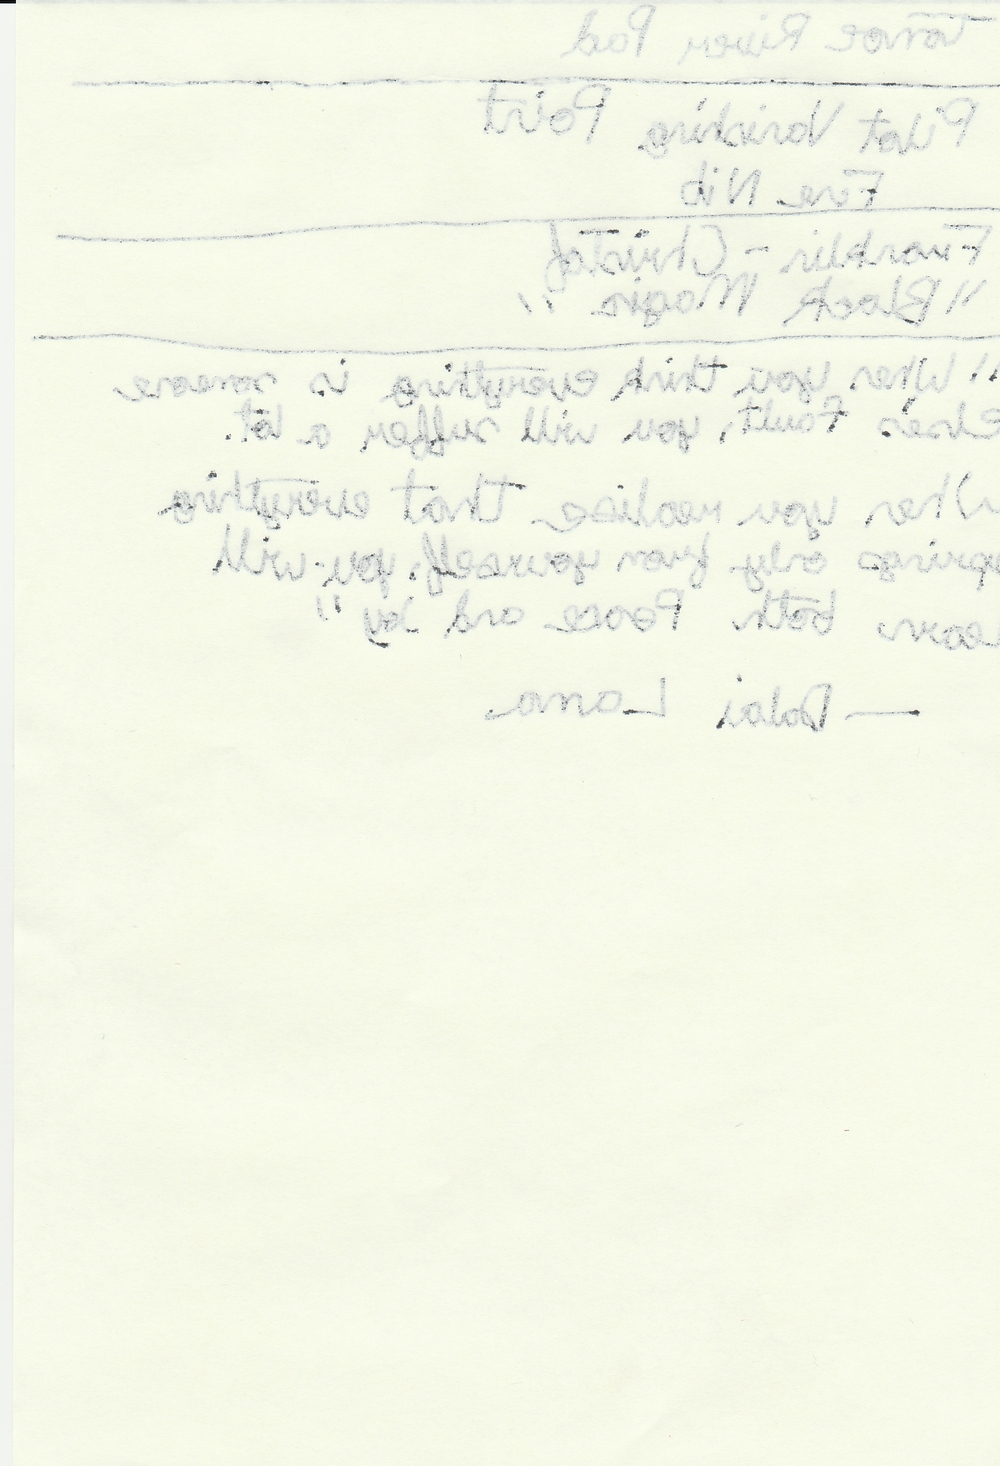 Tomoe River Pad
Pilot Vanishing Point
Fine Nib
Franklin - Christof
"Black Magic"
"When you think everything is someone
Elses Fault, you will suffer a lot.
When you realise that everything
springs only from yourself, you will
learn both Peace and Joy"
— Dalai Lama